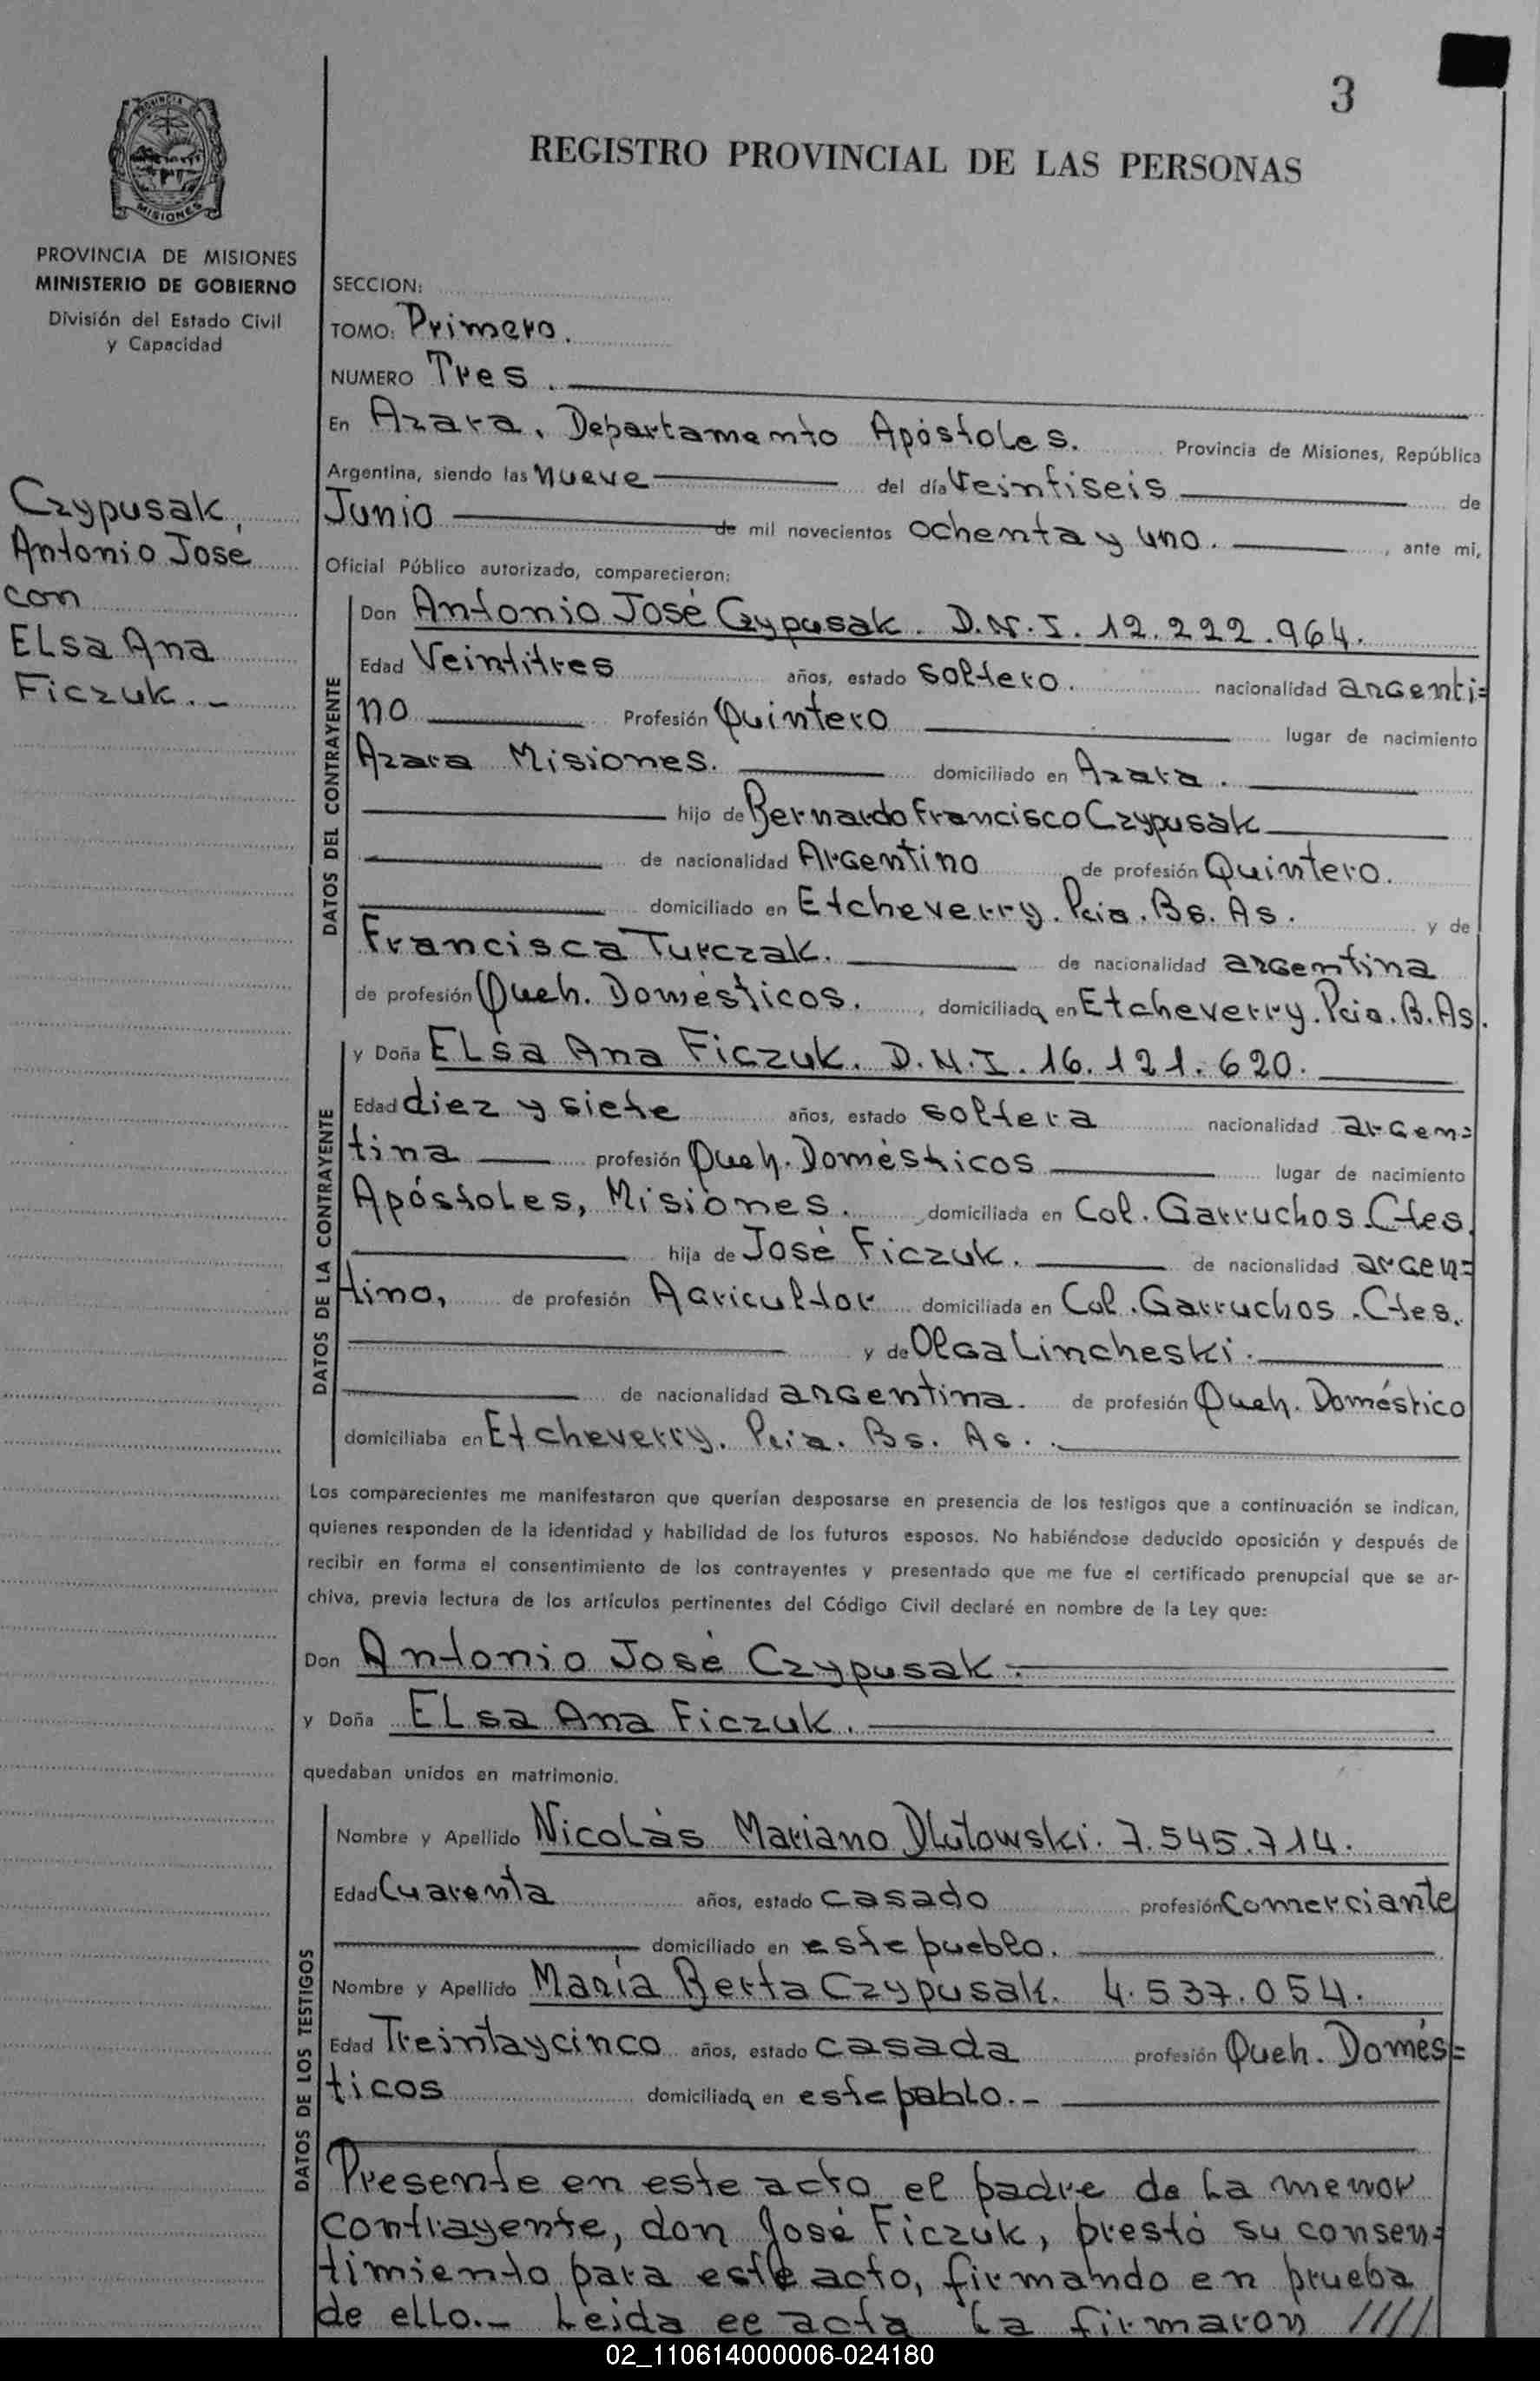 3
REGISTRO PROVINCIAL DE LAS PERSONAS
PROVINCIA DE
MISIONES
PROVINCIA DE MISIONES
MINISTERIO DE GOBIERNO
División del Estado Civil
y Capacidad
Czypusak,
Antonio José
con
Elsa Ana
Ficzuk.-
SECCION:
TOMO: Primero.
NUMERO Tres.
En Azara, Departamento Apóstoles. Provincia de Misiones, República
Argentina, siendo las Nueve del día Veintiseis de
Junio de mil novecientos ochenta y uno. , ante mi,
Oficial Público autorizado, comparecieron:
DATOS DEL CONTRAYENTE
Don Antonio José Czypusak. D.N.I. 12.222.964.
Edad Veintitres años, estado soltero. nacionalidad argenti=
no Profesión Quintero lugar de nacimiento
Azara Misiones. domiciliado en Azara.
hijo de Bernardo Francisco Czypusak
de nacionalidad Argentino de profesión Quintero.
domiciliado en Etcheverry. Pcia. Bs. As. y de
Francisca Turczak. de nacionalidad argentina
de profesión Queh. Domésticos. , domiciliada en Etcheverry. Pcia. B. As.
DATOS DE LA CONTRAYENTE
y Doña Elsa Ana Ficzuk. D.N.I. 16.121.620.
Edad diez y siete años, estado soltera nacionalidad argen=
tina profesión Queh. Domésticos lugar de nacimiento
Apóstoles, Misiones. domiciliada en Col. Garruchos Ctes.
hija de José Ficzuk. de nacionalidad argen=
tino, de profesión Agricultor domiciliada en Col. Garruchos. Ctes.
y de Olga Lincheski.
de nacionalidad argentina. de profesión Queh. Doméstico
domiciliaba en Etcheverry. Pcia. Bs. As.
Los comparecientes me manifestaron que querían desposarse en presencia de los testigos que a continuación se indican,
quienes responden de la identidad y habilidad de los futuros esposos. No habiéndose deducido oposición y después de
recibir en forma el consentimiento de los contrayentes y presentado que me fue el certificado prenupcial que se ar-
chiva, previa lectura de los artículos pertinentes del Código Civil declaré en nombre de la Ley que:
Don Antonio José Czypusak.
y Doña Elsa Ana Ficzuk.
quedaban unidos en matrimonio.
DATOS DE LOS TESTIGOS
Nombre y Apellido Nicolás Mariano Dlutowski. 7.545.714.
Edad Cuarenta años, estado casado profesión Comerciante
domiciliado en este pueblo.
Nombre y Apellido María Berta Czypusak. 4.537.054.
Edad Treintaycinco años, estado casada profesión Queh. Domés=
ticos domiciliada en este pablo.-
Presente en este acto el padre de la menor
contrayente, don José Ficzuk, prestó su consen=
timiento para este acto, firmando en prueba
de ello.- Leida ee acta la firmaron ////
02_110614000006-024180